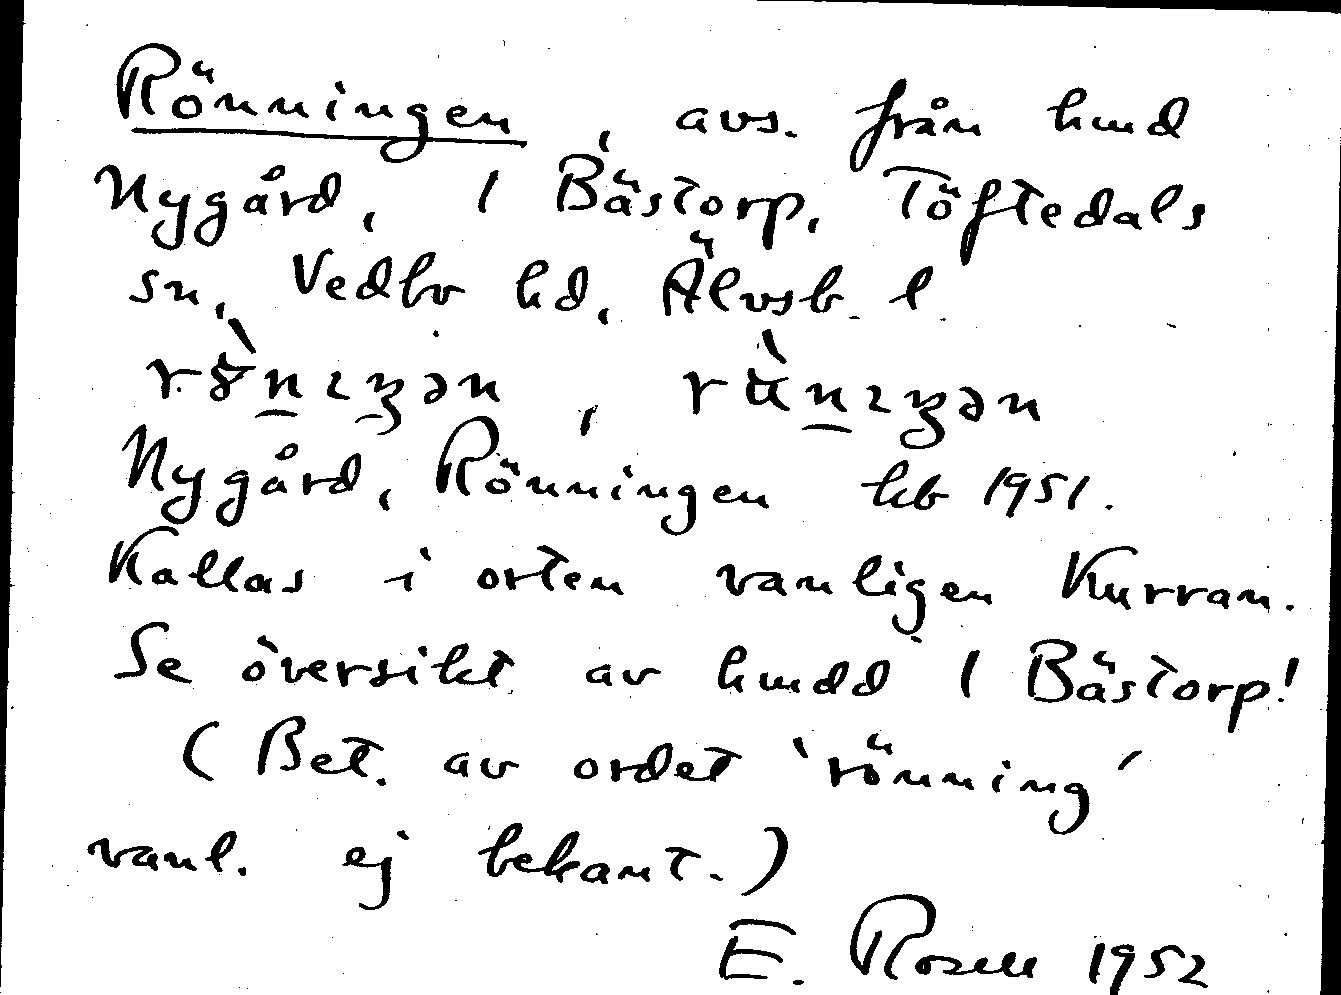 Rönningen, avs. från hmd
Nygård, 1 Bästorp, Töftedals
sn, Vedbo hd, Älvsb. l.
Nygård, Rönningen kb 1951.
Kallas i orten vanligen Kurran.
Se översikt av hmdd 1 Bästorp!
(Bet. av ordet 'rönning'
vanl. ej bekant.)
E. Rosell 1952